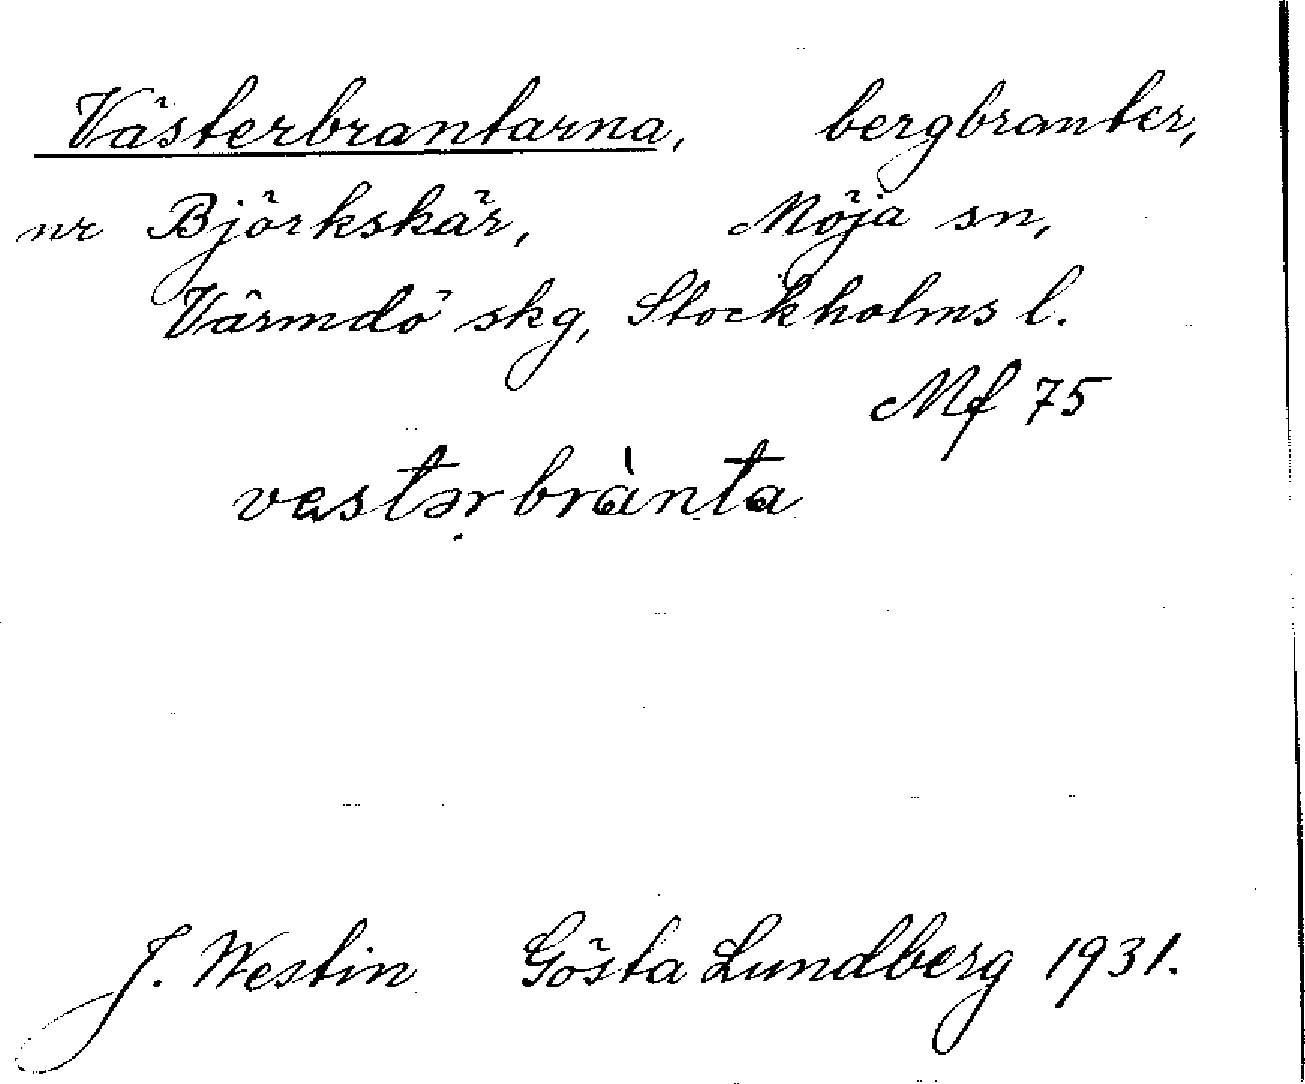 Västerbrantarna, bergbranter,
nr Björkskär, Möja sn,
Värmdö skg, Stockholms l.
Mf 75
vastərbrànta
J. Westin Gösta Lundberg 1931.